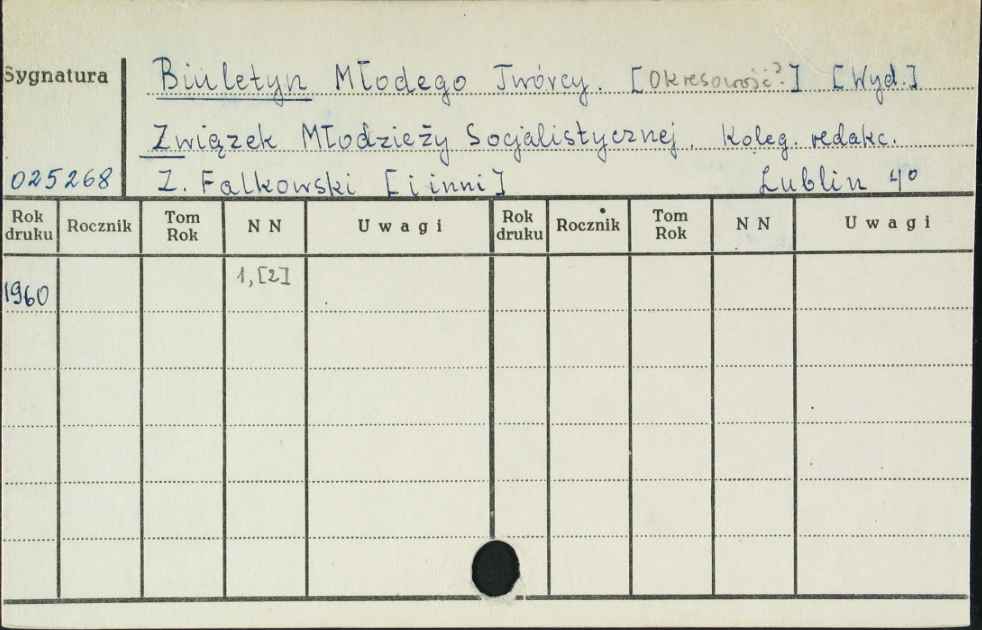 Sygnatura
Biuletyn Młodego Twórcy. [Okresowość?] [Wyd.]
Związek Młodzieży Socjalistycznej. Koleg. redakc.
025268 Z. Falkowski [i inni] Lublin 4°
Rok druku Rocznik Tom Rok N N Uwagi Rok druku Rocznik Tom Rok N N Uwagi
1960 1,[2]